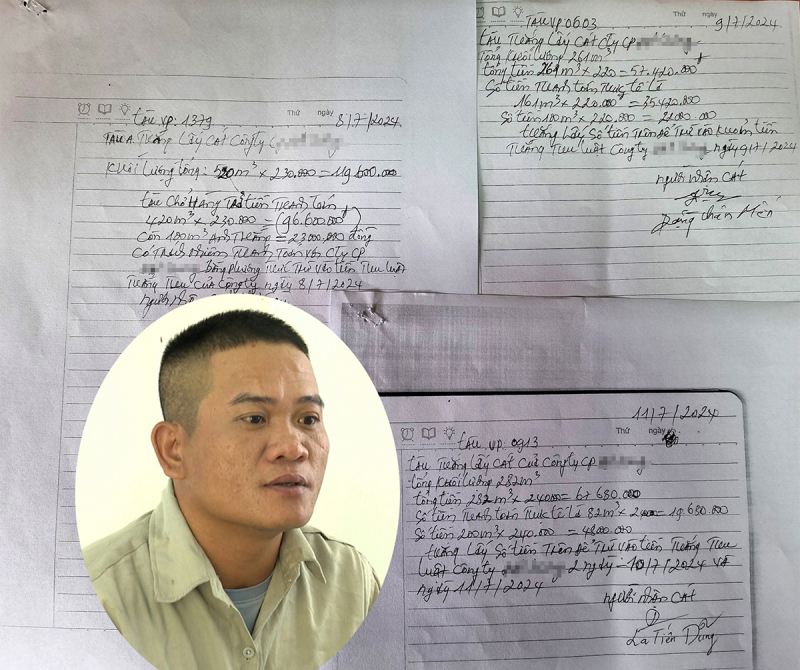 Thứ ngày 8/7/2024
tàu vp: 1379
tàu A Tưởng Lấy CÁT Công ty CP
Khối Lượng tổng: 520 m³ x 230,000 = 119 600.000
tàu chở Hàng Trả tiền Thanh toán
420m³ x 230.000 = (96.600.000)
Còn 100m³ Anh Tưởng = 23000.000 đồng
Có Trách Nhiệm Thanh Toán với CTy CP
Bằng phương Thức Trừ vào tiền Tiêu Luật
Tưởng Tiêu Của Công ty ngày 8/7/2024
Người Nhận
Thứ ngày 9/7/2024
Tàu VP 0603
tàu Tưởng Lấy CÁT CTy CP
Tổng Khối Lượng 261m³
tổng tiền 261m³ x 220 = 57.420.000
Số tiền Thanh toán Thực tế là
161m³ x 220.000 = 35420.000
Số tiền 100m³ x 220.000 = 22000.000
Tưởng Lấy Số tiền Trên để Trừ vào Khoản tiền
Tưởng Tiêu Luật Công ty ngày 9/7/2024
người nhận CÁT
Đặng Chân
11/7/2024
Thứ ngày
tàu VP: 0913
tàu Tưởng Lấy CÁT Của Công ty CP
tổng Khối Lượng 282m³
tổng tiền 282m³ x 240.000 = 67 680.000
Số tiền Thanh toán Thực tế là 82m³ x = 19 680.000
Số tiền 200m³ x 240.000 = 48000.000
Tưởng Lấy Số tiền Trên để Trừ vào tiền Tưởng Tiêu
Luật Công ty 2 ngày - 10/7/2024 và
ngày 11/7/2024
Người nhận CÁT
La Tiến Dũng